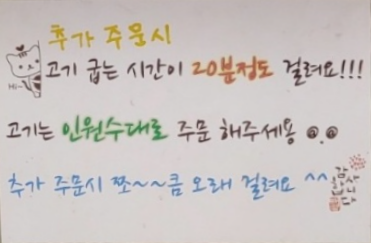 추가 주문시
Hi~
고기 굽는 시간이 20분정도 걸려요!!!
고기는 인원수대로 주문 해주세용 @.@
추가 주문시 쪼~~큼 오래 걸려요 ^^
감사합니다